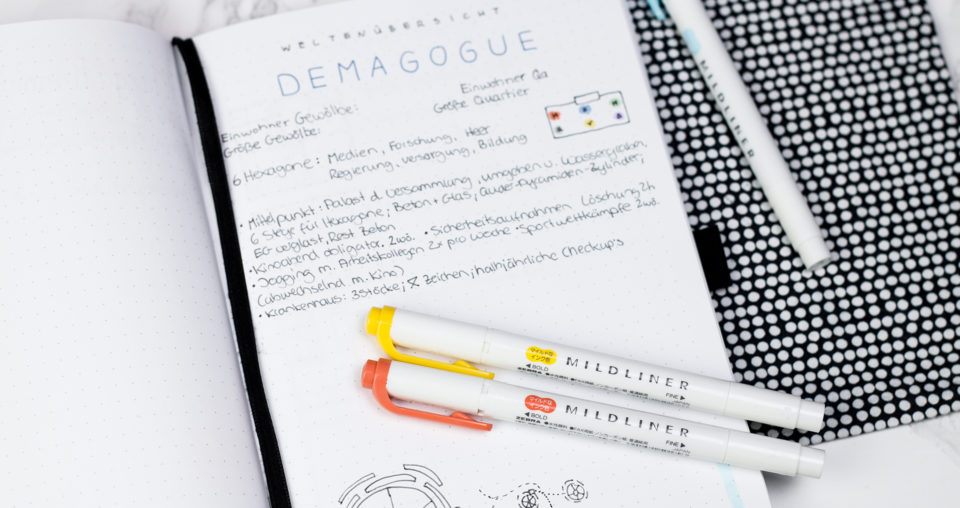 WELTENÜBERSICHT
DEMAGOGUE
Einwohner Gewölbe:
Größe Gewölbe:
Einwohner Qa
Größe Quartier
6 Hexagone: Medien, Forschung, Heer
Regierung, Versorgung, Bildung
• Mittelpunkt: Palast d. Versammlung, umgeben v. Wassergraben,
6 Stege für Hexagone; Beton + Glas; Quader-Pyramiden-Zylinder;
EG verglast, Rest Beton
• Kinoabend obligator. 2wö. • Sicherheitsaufnahmen Löschung 2h
• Jogging m. Arbeitskollegen 2x pro Woche • Sportwettkämpfe 2wö.
(abwechselnd m. Kino)
• Krankenhaus: 3 Stöcke; Zeichen; halbjährliche Checkup's
MILDLINER
マイルドな
インク色
MILDLINER
◀BOLD
ZEBRA
FINE▶
JAPAN
マイルドな
インク色
MILDLINER
◀BOLD
ZEBRA
FINE▶
JAPAN